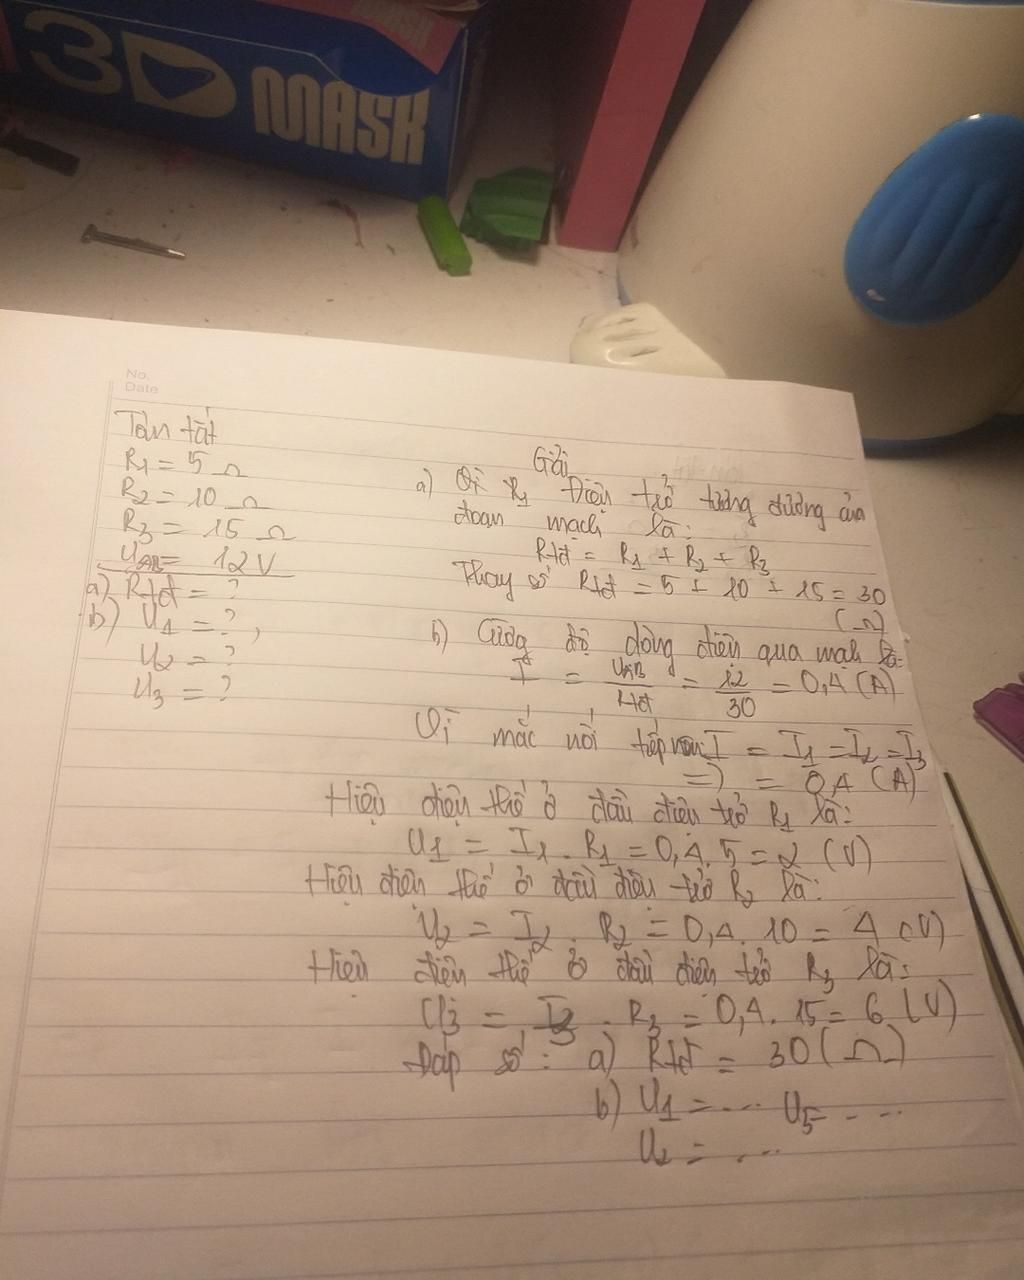 3D MASK
MASK
No.
Date
Tóm tắt
R1 = 5 Ω
R2 = 10 Ω
R3 = 15 Ω
UAB = 12 V
a) Rtđ = ?
b) U1 = ?,
U2 = ?
U3 = ?
Giải
a) Điện trở tương đương của
đoạn mạch là:
Rtđ = R1 + R2 + R3
Thay số Rtđ = 5 + 10 + 15 = 30
(Ω)
b) Cường độ dòng điện qua mạch là:
I = UAB/Rtđ = 12/30 = 0,4 (A)
Vì mắc nối tiếp nên I = I1 = I2 = I3
=) = 0,4 (A)
Hiệu điện thế ở đầu điện trở R1 là:
U1 = I1 . R1 = 0,4. 5 = 2 (V)
Hiệu điện thế ở đầu điện trở R2 là:
U2 = I2 . R2 = 0,4. 10 = 4 (V)
Hiệu điện thế ở đầu điện trở R3 là:
U3 = I3 . R3 = 0,4. 15 = 6 (V)
Đáp số: a) Rtđ = 30 (Ω)
b) U1 = ... U3 = ...
U2 = ...